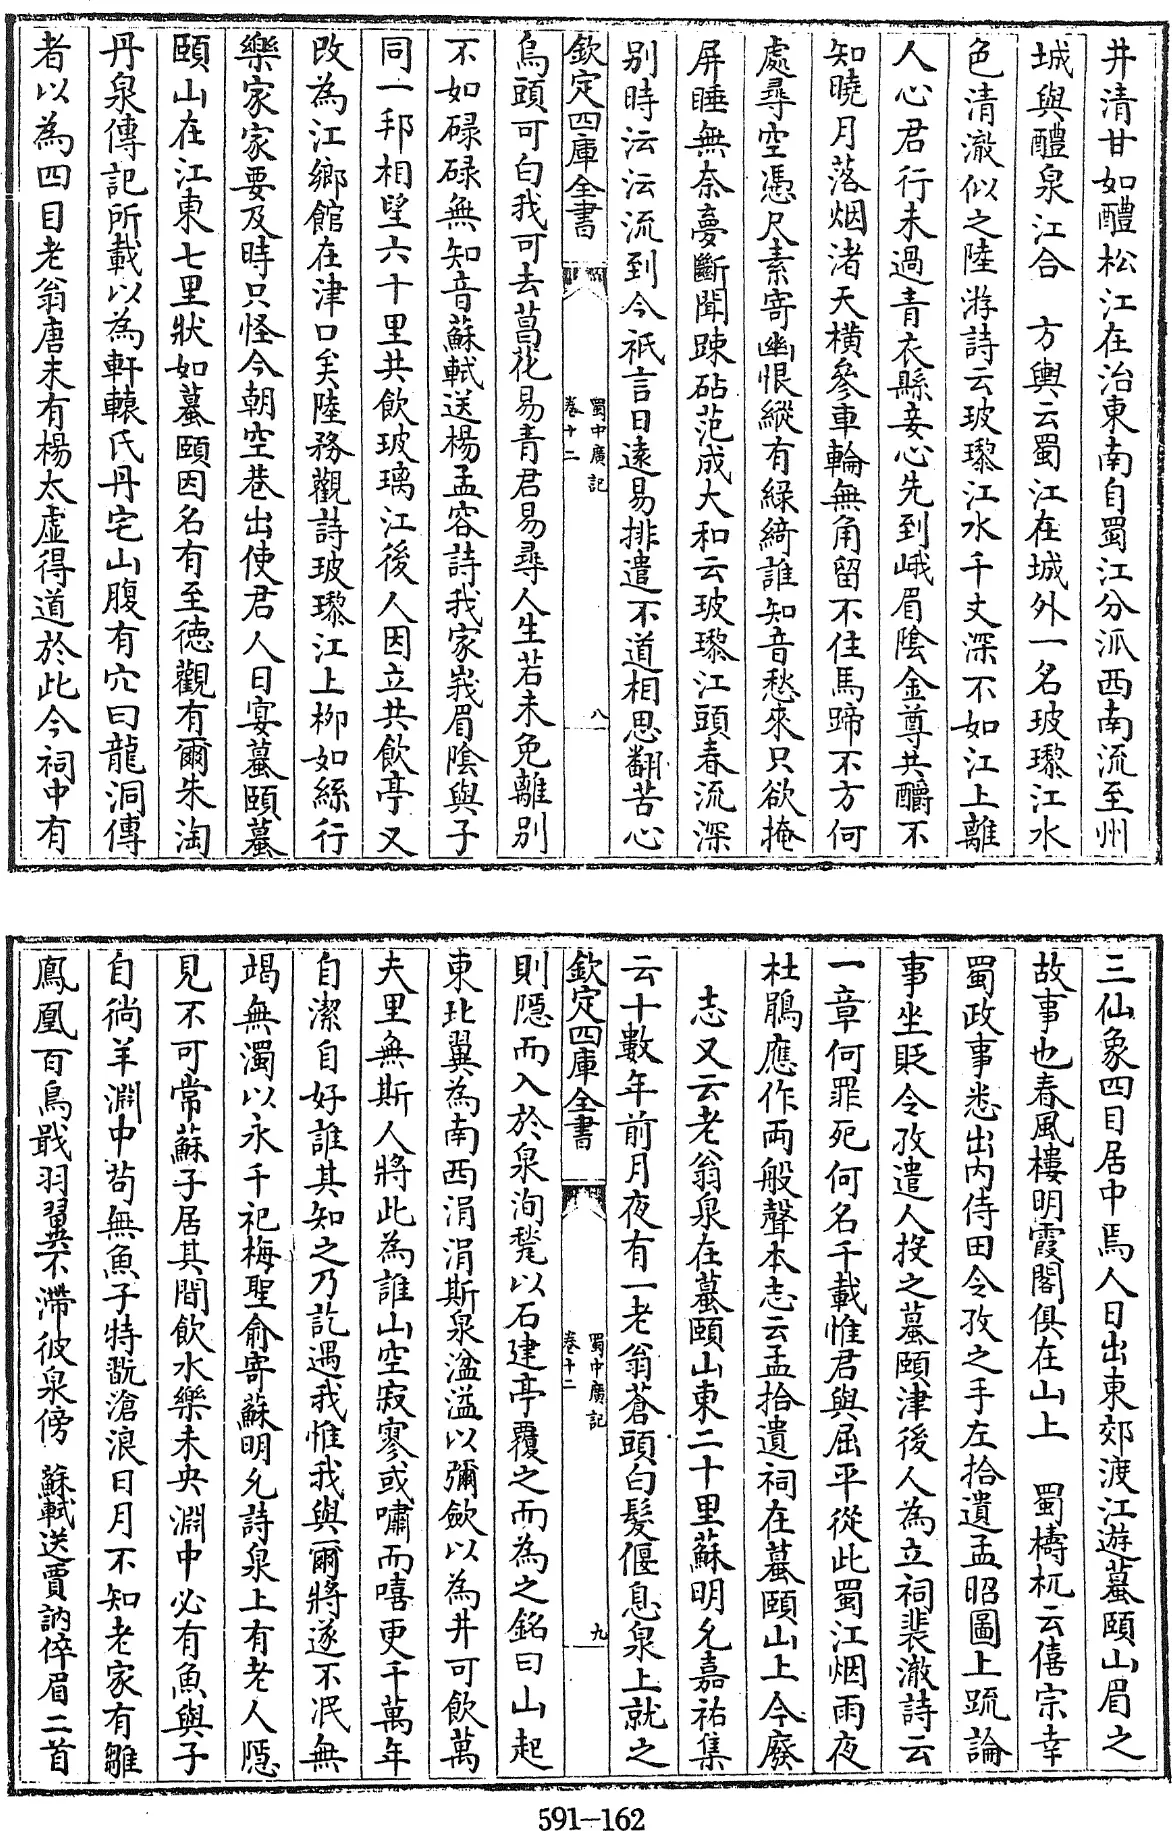 井清甘如醴松江在治東南自蜀江分派西南流至州
城與醴泉江合　方輿云蜀江在城外一名玻瓈江水
色清澈似之陸游詩云玻瓈江水千丈深不如江上離
人心君行未過青衣縣妾心先到峨眉陰金尊共釂不
知曉月落烟渚天橫參車輪無角留不住馬蹄不方何
處尋空憑尺素寄幽恨縱有緑綺誰知音愁來只欲掩
屏睡無奈夢斷聞踈砧范成大和云玻瓈江頭春流深
别時沄沄流到今祇言日遠易排遣不道相思翻苦心
欽定四庫全書
蜀中廣記
卷十二
八
烏頭可白我可去菖花易青君易尋人生若未免離别
不如碌碌無知音蘇軾送楊孟容詩我家峩眉陰與子
同一邦相望六十里共飲玻璃江後人因立共飲亭又
改為江鄉館在津口矣陸務觀詩玻瓈江上柳如絲行
樂家家要及時只怪今朝空巷出使君人日宴蟇頤蟇
頤山在江東七里狀如蟇頤因名有至徳觀有爾朱淘
丹泉傳記所載以為軒轅氏丹宅山腹有穴曰龍洞傳
者以為四目老翁唐末有楊太虚得道於此今祠中有
三仙象四目居中焉人日出東郊渡江遊蟇頤山眉之
故事也春風樓明霞閣俱在山上　蜀檮杌云僖宗幸
蜀政事悉出内侍田令孜之手左拾遺孟昭圖上疏論
事坐貶令孜遣人投之蟇頤津後人為立祠裴澈詩云
一章何罪死何名千載惟君與屈平從此蜀江烟雨夜
杜鵑應作兩般聲本志云孟拾遺祠在蟇頤山上今廢
志又云老翁泉在蟇頤山東二十里蘇明允嘉祐集
云十數年前月夜有一老翁蒼頭白髮偃息泉上就之
欽定四庫全書
蜀中廣記
卷十二
九
則隱而入於泉洵甃以石建亭覆之而為之銘曰山起
東北翼為南西涓涓斯泉溢溢以彌歛以為井可飲萬
夫里無斯人將此為誰山空寂寥或嘯而嘻更千萬年
自潔自好誰其知之乃訖遇我惟我與爾將遂不泯無
竭無濁以永千祀梅聖俞寄蘇明允詩泉上有老人隱
見不可常蘇子居其間飲水樂未央淵中必有魚與子
自徜羊淵中苟無魚子特翫滄浪日月不知老家有雛
鳳凰百鳥戢羽翼不滯彼泉傍　蘇軾送賈訥倅眉二首
591—162